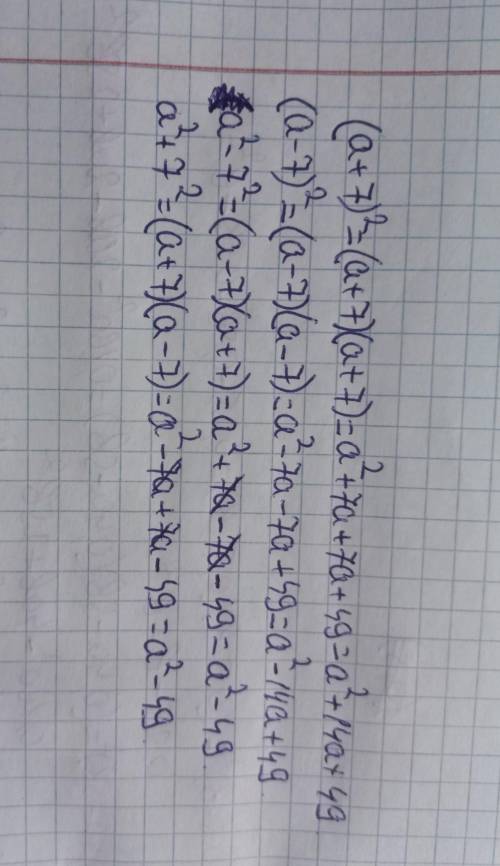 (a+7)²=(a+7)(a+7)=a²+7a+7a+49=a²+14a+49
(a-7)²=(a-7)(a-7)=a²-7a-7a+49=a²-14a+49
a²-7²=(a-7)(a+7)=a²+7a-7a-49=a²-49
a²+7²=(a+7)(a-7)=a²-7a+7a-49=a²-49